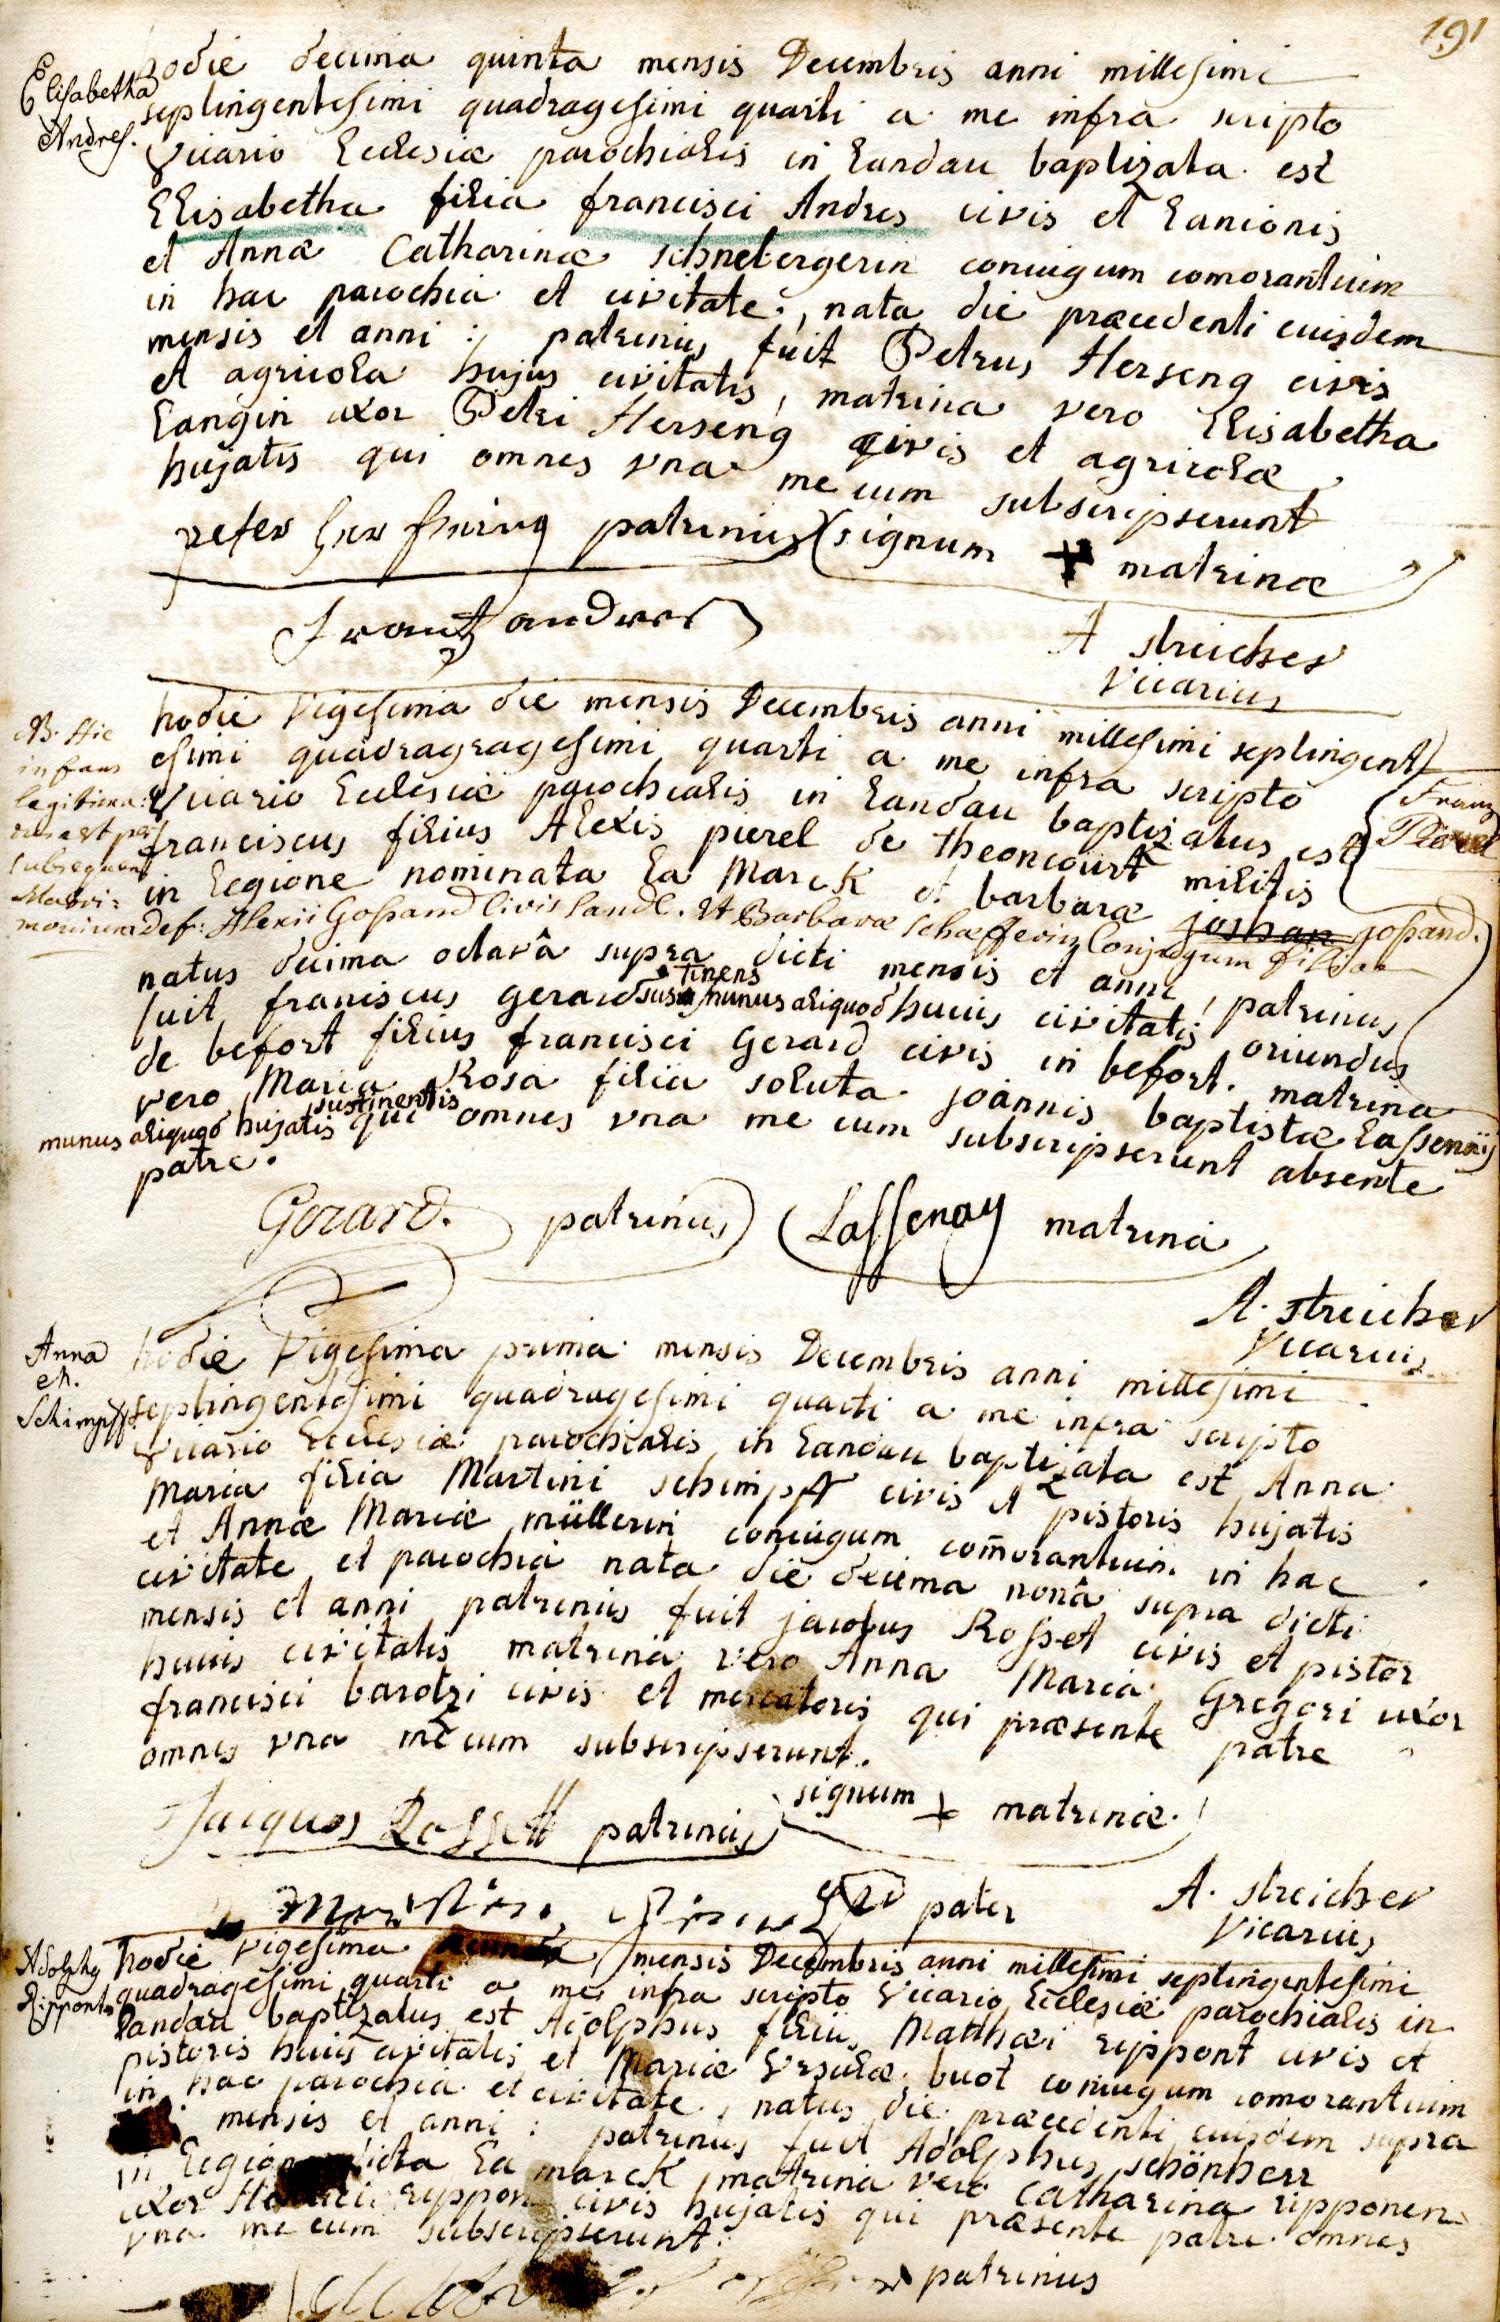 191
Elisabetha
Andres.
hodie decima quinta mensis Decembris anni millesimi
septingentesimi quadragesimi quarti a me infra scripto
Vicario Ecclesiæ parochialis in Landau baptizata est
Elisabetha filia francisci Andres civis et Lanionis
et Annæ Catharinæ schnebergerin coniugum comorantium
in hac parochia et civitate, nata die præcedenti euisdem
mensis et anni : patrinus fuit Petrus Herseng civis
et agricola hujus civitatis, matrina vero Elisabetha
Langin uxor Petri Herseng civis et agricolæ
hujatis qui omnes vna me cum subscripserunt
peter patrinus signum + matrinæ
Frantz andres
A streicher
Vicarius
NB. Hic
infans
legitima:
est per
subsequens
Matri:
monium
hodie Vigesima die mensis Decembris anni millesimi septingent
esimi quadragragesimi quarti a me infra scripto
Vicario Ecclesiæ parochialis in Landau baptizatus est
franciscus filius Alexis pierel de theoncourt militis
in Legione nominata La Marck et barbaræ joshan goßand.
Def: Alexii Goßand Civis Land. et Barbaræ Schæfferin Conjugum filiæ
Franz
Pierel
natus decima octavâ supra dicti mensis et anni, patrinus
fuit franciscus Gerard sustinens munus aliquod huius civitatis oriundus
de befort filius francisci Gerard civis in befort. matrina
vero Maria Rosa filia soluta joannis baptistæ Lassenaÿ
sustinentis
munus aliquod hujatis qui omnes vna me cum subscripserunt absente
patre.
Gerard. patrinus Lassenay matrina
A. streicher
Vicarius
Anna
M.
Schimpff
hodie Vigesima prima mensis Decembris anni millesimi
septingentesimi quadragesimi quarti a me infra scripto
Vicario Ecclesiæ parochialis in Landau baptizata est Anna
Maria filia Martini schimpff civis et pistoris hujatis
et Annæ Mariæ müllerin coniugum com̄orantium in hac
civitate et parochia nata die decima nonâ supra dicti
mensis et anni patrinus fuit jacobus Rosset civis et pistor
huius civitatis matrina vero Anna Maria Gregori uxor
francisci barotzi civis et mercatoris qui præsente patre
omnes vna me cum subscripserunt.
Jacques Rossett patrinus signum + matrinæ.
pater
A. streicher
Vicarius
Adolphg
Ripponts
hodie vigesima secunda mensis Decembris anni millesimi septingentesimi
quadragesimi quarti a me infra scripto Vicario Ecclesiæ parochialis in
Landau baptizatus est Adolphus filius Matthæi rippont civis et
pistoris huius civitatis et Mariæ Vrsulæ buot coniugum comorantium
in hac parochia et civitate, natus die præcedenti euisdem supra
mensis et anni : patrinus fuit Adolphus schönherr
in Legione dicta La marck, matrina vero Catharina ripponen
uxor rippont civis hujatis qui præsente patre omnes
vna me cum subscripserunt.
patrinus